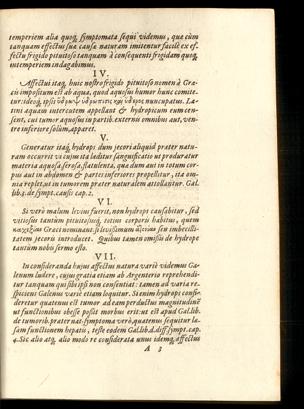 temperiem alia quoq; symptomata sequi videmus, qua cùm
tanquam effectus sua causæ naturam imitentur facilè ex ef-
fectu frigido pituitoso tanquam à consequenti frigidam quoq;
intemperiem indagabimus.
IV.
Affectui itaq; huic nostro frigido pituitoso nomen à Græ-
cis impositum est ab aqua, quod aquosus humor hunc comite-
tur: ideoq;
nuncupatur. La-
tini aquam intercutem appellant & hydropicum eum cen-
sent, cui tumor aquosus in partib. externis omnibus aut, ven-
tre inferiore solùm, apparet.
V.
Generatur itaq; hydrops dum jecori aliquid præter natu-
ram occurrit vi cujus ita læditur sanguificatio ut producatur
materia aquosa, serosa, flatulenta, quæ dum aut in totum cor-
pus aut in abdomen & partes inferiores propellitur, ita om-
nia replet, ut in tumorem præter naturalem attollantur. Gal.
lib. 3. de sympt. causis cap. 2.
VI.
Si verò malum levius fuerit, non hydrops causabitur, sed
vitiosus tantùm pituitosusq; totius corporis habitus, quem
καχεξίαν Græci nominant si levissimum
seu imbecilli-
tatem jecoris introducet. Quibus tamen omissis de hydrope
tantùm nobis sermo esto.
VII.
In consideranda hujus affectus natura variè videmus Ga-
lenum ludere, cujus gratia etiam ab Argenterio reprehendi-
tur tanquam qui sibi ipsi non consentiat: tamen ad varia re-
spiciens Galenus variè etiam loquitur. Si enim hydrops consi-
deretur quatenus est tumor ad eam perductus magnitudinē
ut functionibus obesse possit morbus erit: ut est apud Gal. lib.
de tumorib. præter nat. symptoma verò, quatenus sequitur læ-
sam functionem hepatis, teste eodem Gal. lib. d. diff. sympt. cap.
4. Sic alio atq; alio modo re considerata unus idemq; affectus
A 3